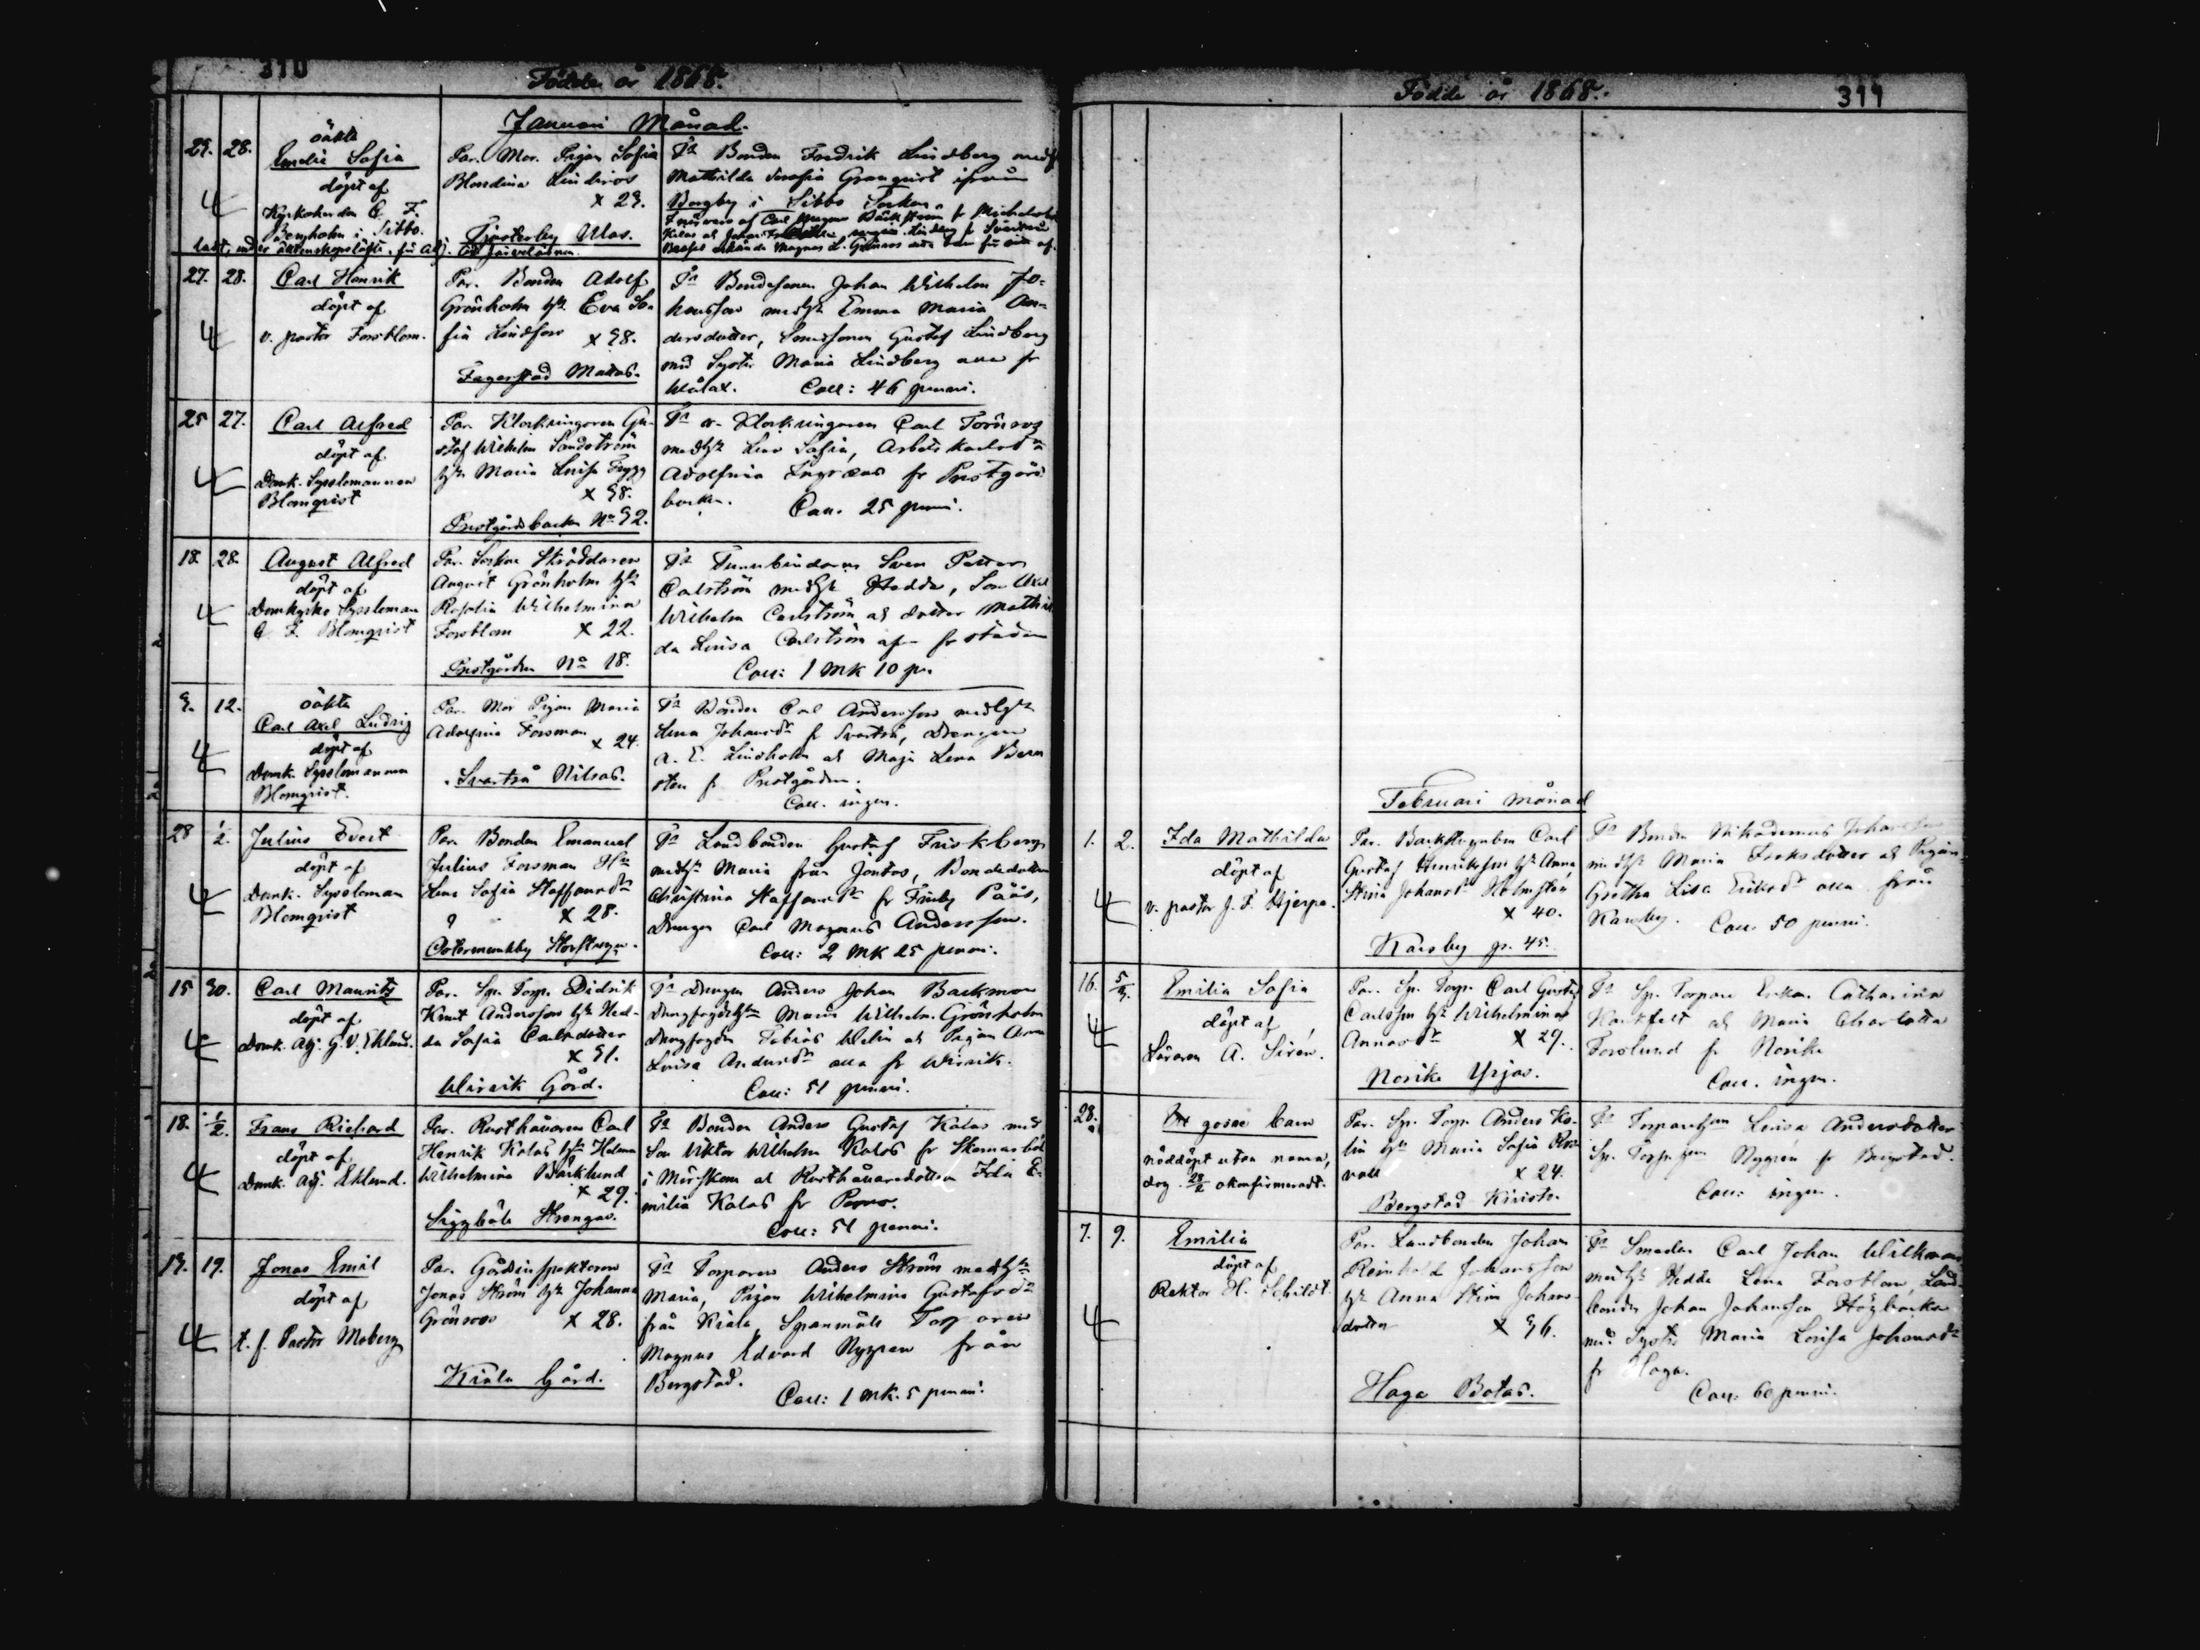 310
Födde år 1868.
Januari Månad.
29. 28.
oäkta
Emelie Sofia
döpt af
Kyrkoherden C. F.
Bergholm i Sibbo.
Par. Mor. Pigan Sofia
Blondina Lindroos
x 23.
Tjusterby Ulas.
Fa Bonden Fredrik Lindberg med
Mathilda Serafia Granqvist ifrån
Borgby i Sibbo Socken.
27. 28.
Carl Henrik
döpt af
v. pastor Forsblom.
Par. Bonden Adolf
Grönholm h: Eva So-
fia Lindfors x 38.
Fagerstad Mattas.
Fa Bondesonen Johan Wilhelm Jo-
hansson med h: Emma Maria An-
dersdotter, Gustaf Lindberg
med Syster Maria Lindberg alla fr
Wålax. Coll: 46 penni.
25 27.
Carl Alfred
döpt af
Domk. Sysslomannen
Blomqvist
Par. Klockringaren Gu-
staf Wilhelm Sandström
h: Maria Lovisa Trygg
x 38.
Prestgårdsbacken No 32.
Fa v. Klockringaren Carl Törnroos
med h: Lena Sofia, Arbetskarlsd:
Adolfina Engræus fr Prestgårds
backen. Coll. 25 penni.
18. 28.
August Alfred
döpt af
Domkyrko Syssloman
C. F. Blomqvist
Par. Socken Skräddaren
August Grönholm h:
Rosalia Wilhelmina
Forsblom x 22.
Prestgården No 18.
Fa Tunnbindaren Sven Petter
Carlström med h: Hedda, Son Axel
Wilhelm Carlström och dotter Mathil
da Lovisa Carlström fr staden
Coll: 1 mk 10 pi.
3. 12.
oäkta
Carl Axel Ludvig
döpt af
Domk. Sysslomannen
Blomqvist.
Par. Mor Pigan Maria
Adolfina Forsman
x 24.
Svartså Nilsas.
Fa Bonden Carl Andersson med h:
Lena Johansd: fr Svartså, Drengen
A. E. Lindholm och Maja Lena Bern
sten fr Prestgården.
Coll. ingen.
28 1/2.
Julius Evert
döpt af
Domk. Syssloman
Blomqvist
Par. Bonden Emanuel
Julius Forsman H:
Lena Sofia Staffansd:
x 28.
Östermunkby Storstuga.
Fa Landbonden Gustaf Friskberg
med h: Maria från Jontas, Bondedottren
Christina Staffansd: fr Finby Pääs,
Drengen Carl Magnus Andersson.
Coll: 2 mk 25 penni.
15 30.
Carl Mauritz
döpt af
Domk. Adj. G. V. Eklund.
Par. Sp. Torp. Didrik
Knut Andersson h: Hed-
da Sofia Carlsdotter
x 31.
Wirvik Gård.
Fa Drengen Anders Johan Backman
Maria Wilhelm. Grönholm
Drengfogden Tobias Welin och Pigan Anna
Lovisa Andersd: alla fr Wirvik.
Coll: 51 penni.
18. 1/2.
Frans Richard
döpt af
Domk. Adj. Eklund.
Par. Rusthållaren Carl
Henrik Kalas h: Helena
Wilhelmina Bäcklund
x 29.
Siggböle Strengas.
Fa Bonden Anders Gustaf Kalas med
Son Viktor Wilhelm Kalas fr Skomarsböle
i Mörskom och Rusthållaredottren Ida E-
milia Kalas fr Perno.
Coll: 51 penni.
13. 19.
Jonas Emil
döpt af
t. f. Pastor Moberg
Par. Gårdsinspektoren
Jonas Ström h: Johanna
Grönroos x 28.
Kiala Gård.
Fa Torparen Anders Ström med h:
Maria, Pigan Wilhelmina Gustafsd:
från Kiala, Spanmåls Torparen
Magnus Edvard Nygren från
Bergstad.
Coll: 1 mk. 5 penni.
Födde år 1868.
311
Februari månad
1. 2.
Ida Mathilda
döpt af
v. pastor J. F. Hjerpe.
Par. Backstugubon Carl
Gustaf Henriksson h: Anna
Stina Johansd: Holmsten
x 40.
Karsby p. 45.
Fa Bonden Nikodemus Johansson
med h: Maria Eriksdotter och Pigan
Gretha Lisa Eriksd: alla från
Karsby. Coll. 50 penni.
16. 5/3.
Emilia Sofia
döpt af
Läraren A. Sirén.
Par. Sp. Torp. Carl Gustaf
Carlsson h: Wilhelmina
Annasd: x 29.
Norike Yrjas.
Fa Sp. Torpare Catharina
och Maria Charlotta
Forslund fr Norike
Coll. ingen.
28.
Ett gosse barn
nöddöpt utan namn,
dog 28/2 okonfirmeradt.
Par. Sp. Torp. Anders Ko-
lin h: Maria Sofia
x 24.
Bergstad Kiristo.
Fa Lovisa Andersdotter
Sp. Nygrén fr Bergstad.
Coll: ingen.
7. 9.
Emilia
döpt af
Rektor H. Schildt.
Par. Landbonden Johan
Reinhold Johansson
h: Anna Stina Johans-
dotter x 36.
Haga Botas.
Fa Smeden Carl Johan Wilkman
med h: Hedda Lena Forsblom, Land-
bonden Johan Johansson Högbacka
med Syster Maria Lovisa Johansd:
fr Haga.
Coll: 60 penni.